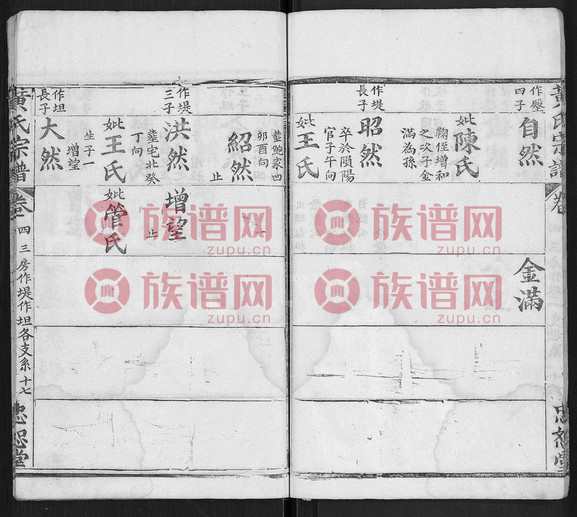 黃氏宗譜
卷
忠恕堂
作壂
四子
自然
妣陳氏
鞠侄增和
之次子金
滿為孫
金滿
作堤
長子
昭然
卒於陨陽
官子午向
妣王氏
紹然
卯酉向
止
作堤
三子
洪然
葬宅北癸
丁向
增望
止
妣王氏
生子一
增望
妣管氏
作坦
長子
大然
黃氏宗譜
卷
四
三房作堤作坦各支系
十七
忠恕堂
族谱网
zupu.cn
族谱网
zupu.cn
族谱网
zupu.cn
族谱网
zupu.cn